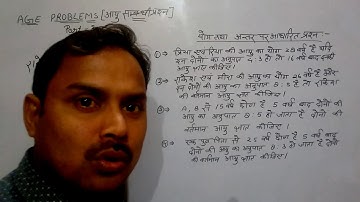 AGE PROBLEMS [आयु सम्बन्धी प्रश्न]
योग तथा अन्तर पर आधारित प्रश्न-
प्रिया एवं रिया की आयु का योग 28 वर्ष है यदि
इन दोनों का अनुपात 4:3 हो तो 16 वर्ष बाद
आयु ज्ञात कीजिए।
राकेश एवं मीरा की आयु का योग वर्ष है और
इन दोनों की आयु का अनुपात है तो राकेश
की वर्तमान आयु ज्ञात कीजिए।
A, B से 15 वर्ष छोटा है 5 वर्ष बाद दोनों की
आयु का अनुपात हो जाता है दोनों की
वर्तमान आयु ज्ञात कीजिए।
एक पुत्र पिता से 25 वर्ष छोटा है 5 वर्ष बाद
दोनों की आयु का अनुपात 8:3 हो जाता है दोनों
की वर्तमान आयु ज्ञात कीजिए।